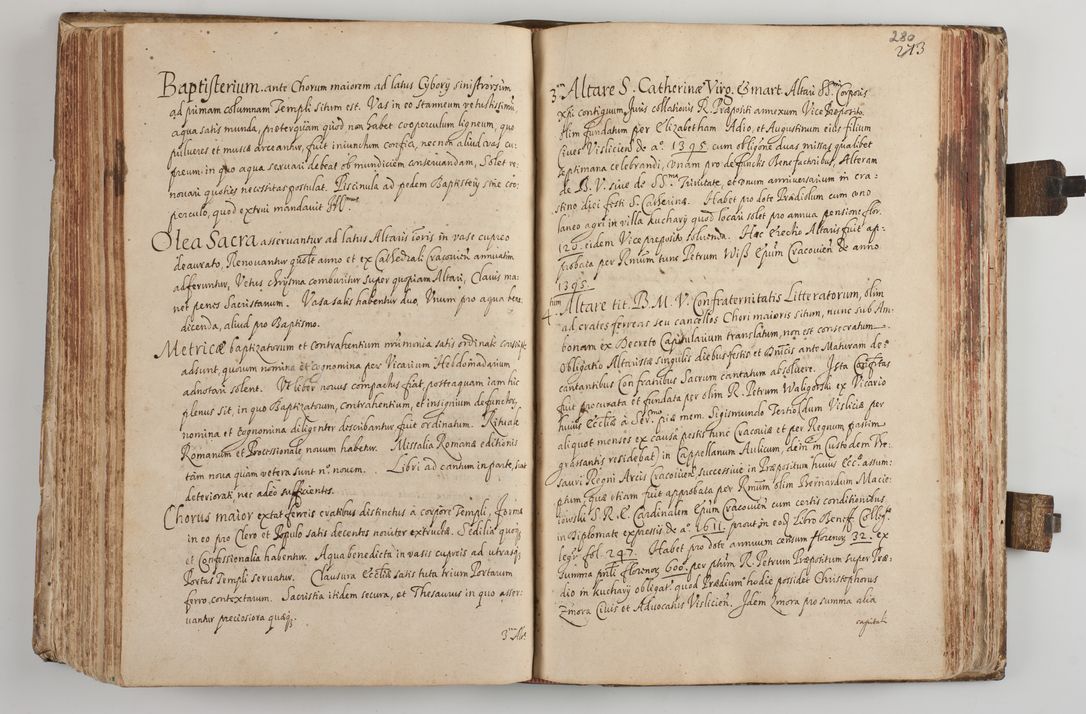 Baptisterium ante Chorum maiorem ad latus Cyborij sinistrorsum
ad primam columnam Templi situm est. Vas in eo stanneum vetustissimum
aqua satis munda, praeterquam quod non habet cooperculum ligneum, quo
pulueres et muscae arceantur, fuit iniunctum confici, necnon aliud vas cu-
preum in quo aqua seruari debeat ob mundiciem conseruandam, Solet re-
nouari quoties necessitas postulat. Piscinula ad pedem Baptisterij sine coo-
perculo, quod extrui mandauit Ill.mus
Olea Sacra asseruantur ad latus Altaris in vase cupreo
deaurato, Renouantur quolt anno et ex Cathedrali Cracouien̄ annuatim
adferuntur, Vetus chrysma comburitur super quopiam Altari, Clauis ma-
net penes Sacristanum. Vasa salis habentur duo, Unum pro aqua bene-
dicenda, aliud pro Baptismo.
Metricae baptizatorum et Contrahentium satis ordinate conscript.
adsunt, quorum nomina et cognomina per Vicarium Hebdomadarium
adnotari solent. Ut liber nouus compactus fiat, postquam iam hic
plenus sit, in quo Baptizatorum, contrahentium, et insignium defunctor,
nomina et cognomina diligenter describantur fuit ordinatum. Rituale
Romanum et Processionale nouum habetur. Missalia Romanae editionis
tam noua quam vetera sunt n.o nouem. Libri ad cantum in parte, sunt
deteriorati, nec adeo sufficientes.
Chorus maior extat ferreis cratibus distinctus à corpore Templi, forma
in eo pro Clero et Populo satis decentes nouiter extructa. Sedilia quoq;
et Confessionalia habentur. Aqua benedicta in vasis cupreis ad utrasq;
Portas Templi seruatur. Clausura Ecclīae satis tuta trium Portarum
ferro contextarum. Sacristia itidem secura, et Thesaurus in quo asser-
uantur preciosiora quaeq;
3.m Alt.
280
273
3.m Altare S. Catherinae Virg. & mart. Altari SS.mi Corporis
xp̄i contiguum Juris collationis R. Praepositi annexum Vice Praeposito
olim fundatum per Elizabetham Adio, et Augustinum eius filium
Ciues Vislicien̄ de a.o 1395. cum oblig.ne duas missas qualibet
septimana celebrandi, unam pro defunctis Benefactoribus, Alteram
de B. V. siue de SS.ma Trinitate, et unum anniversarium in cra-
stino diei festi S. Catherinae. Habet pro dote Praediolum cum uno
laneo agri in villa Kucharij quod locari solet pro annua pensione flor.
120. eidem Vice preposito soluenda. Haec erectio Altaris fuit ap-
probata per Rm̄um tunc Petrum Wisz Ep̄um Cracovien̄ de anno
1395.
4.tum Altare tit. B. M. V. Confraternitatis Litteratorum, olim
ad crates ferreas seu cancellos Chori maioris situm, nunc sub Am-
bonam ex Decreto Capitularium translatum, non est consecratum.
Obligatio Altaristae singulis diebus festis et Dn̄icis ante Maturam de-
cantantibus Confratribus Sacrum cantatum absoluere. Ista Confr̄itas
fuit procurata et fundata per olim R. Petrum Waligorski ex Vicario
huius Ecclīae à Ser.mo piae mem. Sigismundo Tertio (dum Visliciae per
aliquot menses ex causa pestis tunc Cracouiae et per Regnum passim
grassantis residebat) in Cappellanum Aulicum, dein in Custodem The-
sauri Regni Arcis Cracouien̄ successiue in Praepositum huius Ecc.ae assum-
ptum quae etiam fuit approbata per Rm̄um olim Bernardum Macie-
iowski S. R. E. Cardinalem Ep̄um Cracouien̄ cum certis conditionibus
in Diplomate expressis de a.o 1611. prout in eod Libro Benef. Colleg.
leg.r fol. 247. Habet pro dote annuum censum florenor, 32. ex
summa prīli florenor, 600. per R. Petrum Praepositum super Prae-
dio in Kucharij obligat. quod Praedium hodie possidet Christophorus
Zmora Ciuis et Aduocatus Vislicien̄. Idem Zmora pro summa alia
capitali